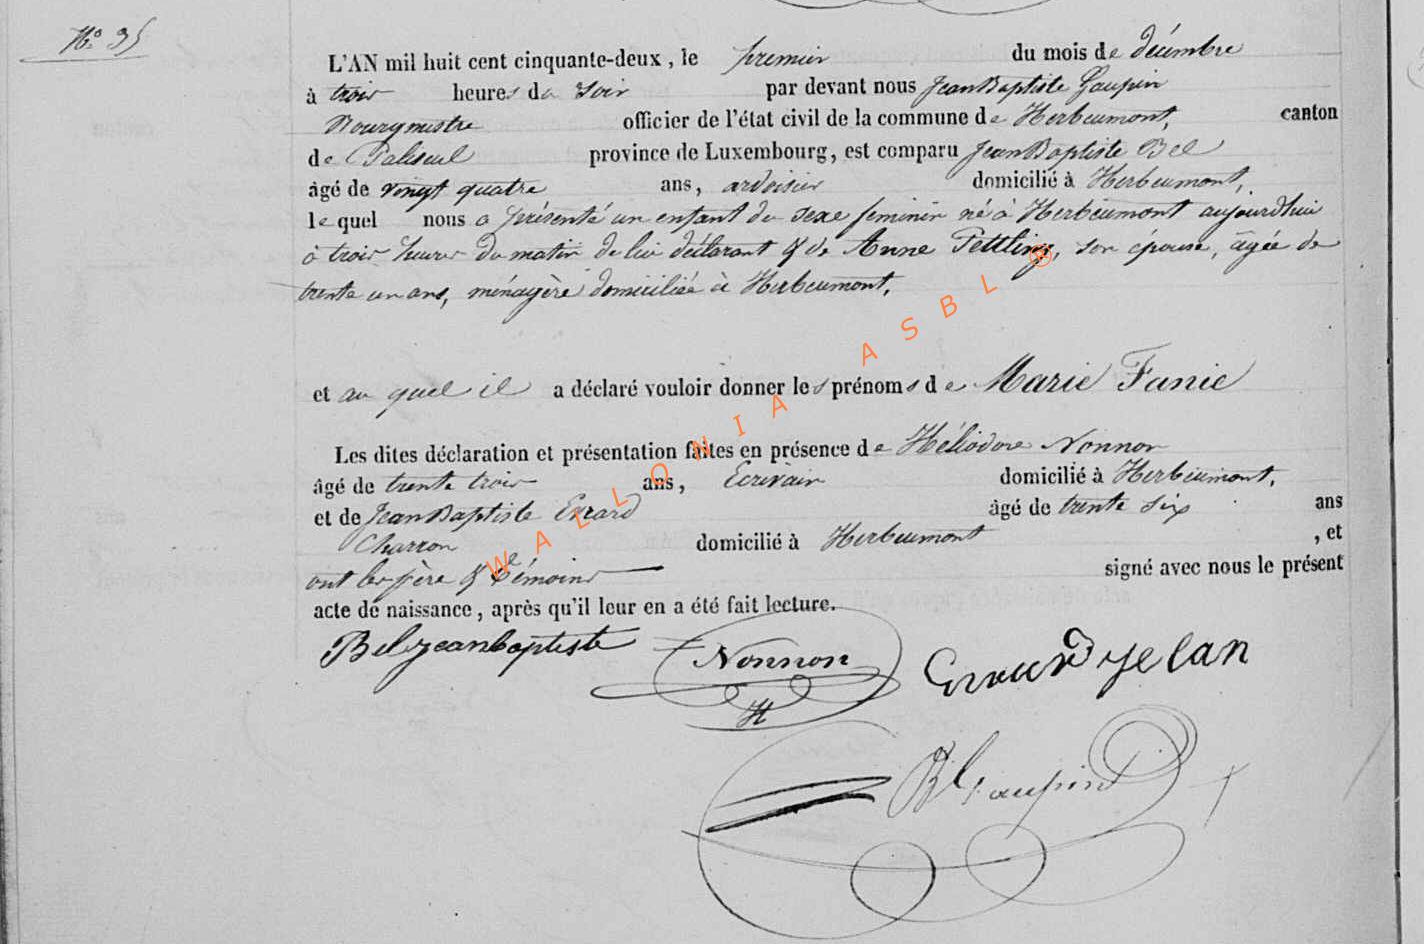 No 35
L'AN mil huit cent cinquante-deux, le premier du mois de décembre
à trois heures du soir par devant nous Jean Baptiste Gaupin
Bourgmestre officier de l'état civil de la commune de Herbeumont, canton
de Paliseul province de Luxembourg, est comparu Jean Baptiste Bel
âgé de vingt quatre ans, ardoisier domicilié à Herbeumont,
lequel nous a présenté un enfant du sexe feminin né à Herbeumont aujourdhui
à trois heures du matin de lui déclarant & de Anne Pettling, son épouse, âgée de
trente un ans, ménagère domiciliée à Herbeumont,
et au quel il a déclaré vouloir donner les prénoms de Marie Fanie
Les dites déclaration et présentation faites en présence de Héliodore Nonnon
âgé de trente trois ans, Ecrivain domicilié à Herbeumont,
et de Jean Baptiste Evrard âgé de trente six ans
Charron domicilié à Herbeumont , et
ont les père & témoins signé avec nous le présent
acte de naissance, après qu'il leur en a été fait lecture.
Bel jean baptiste Nonnon
H
WALLONIA ASBL ®